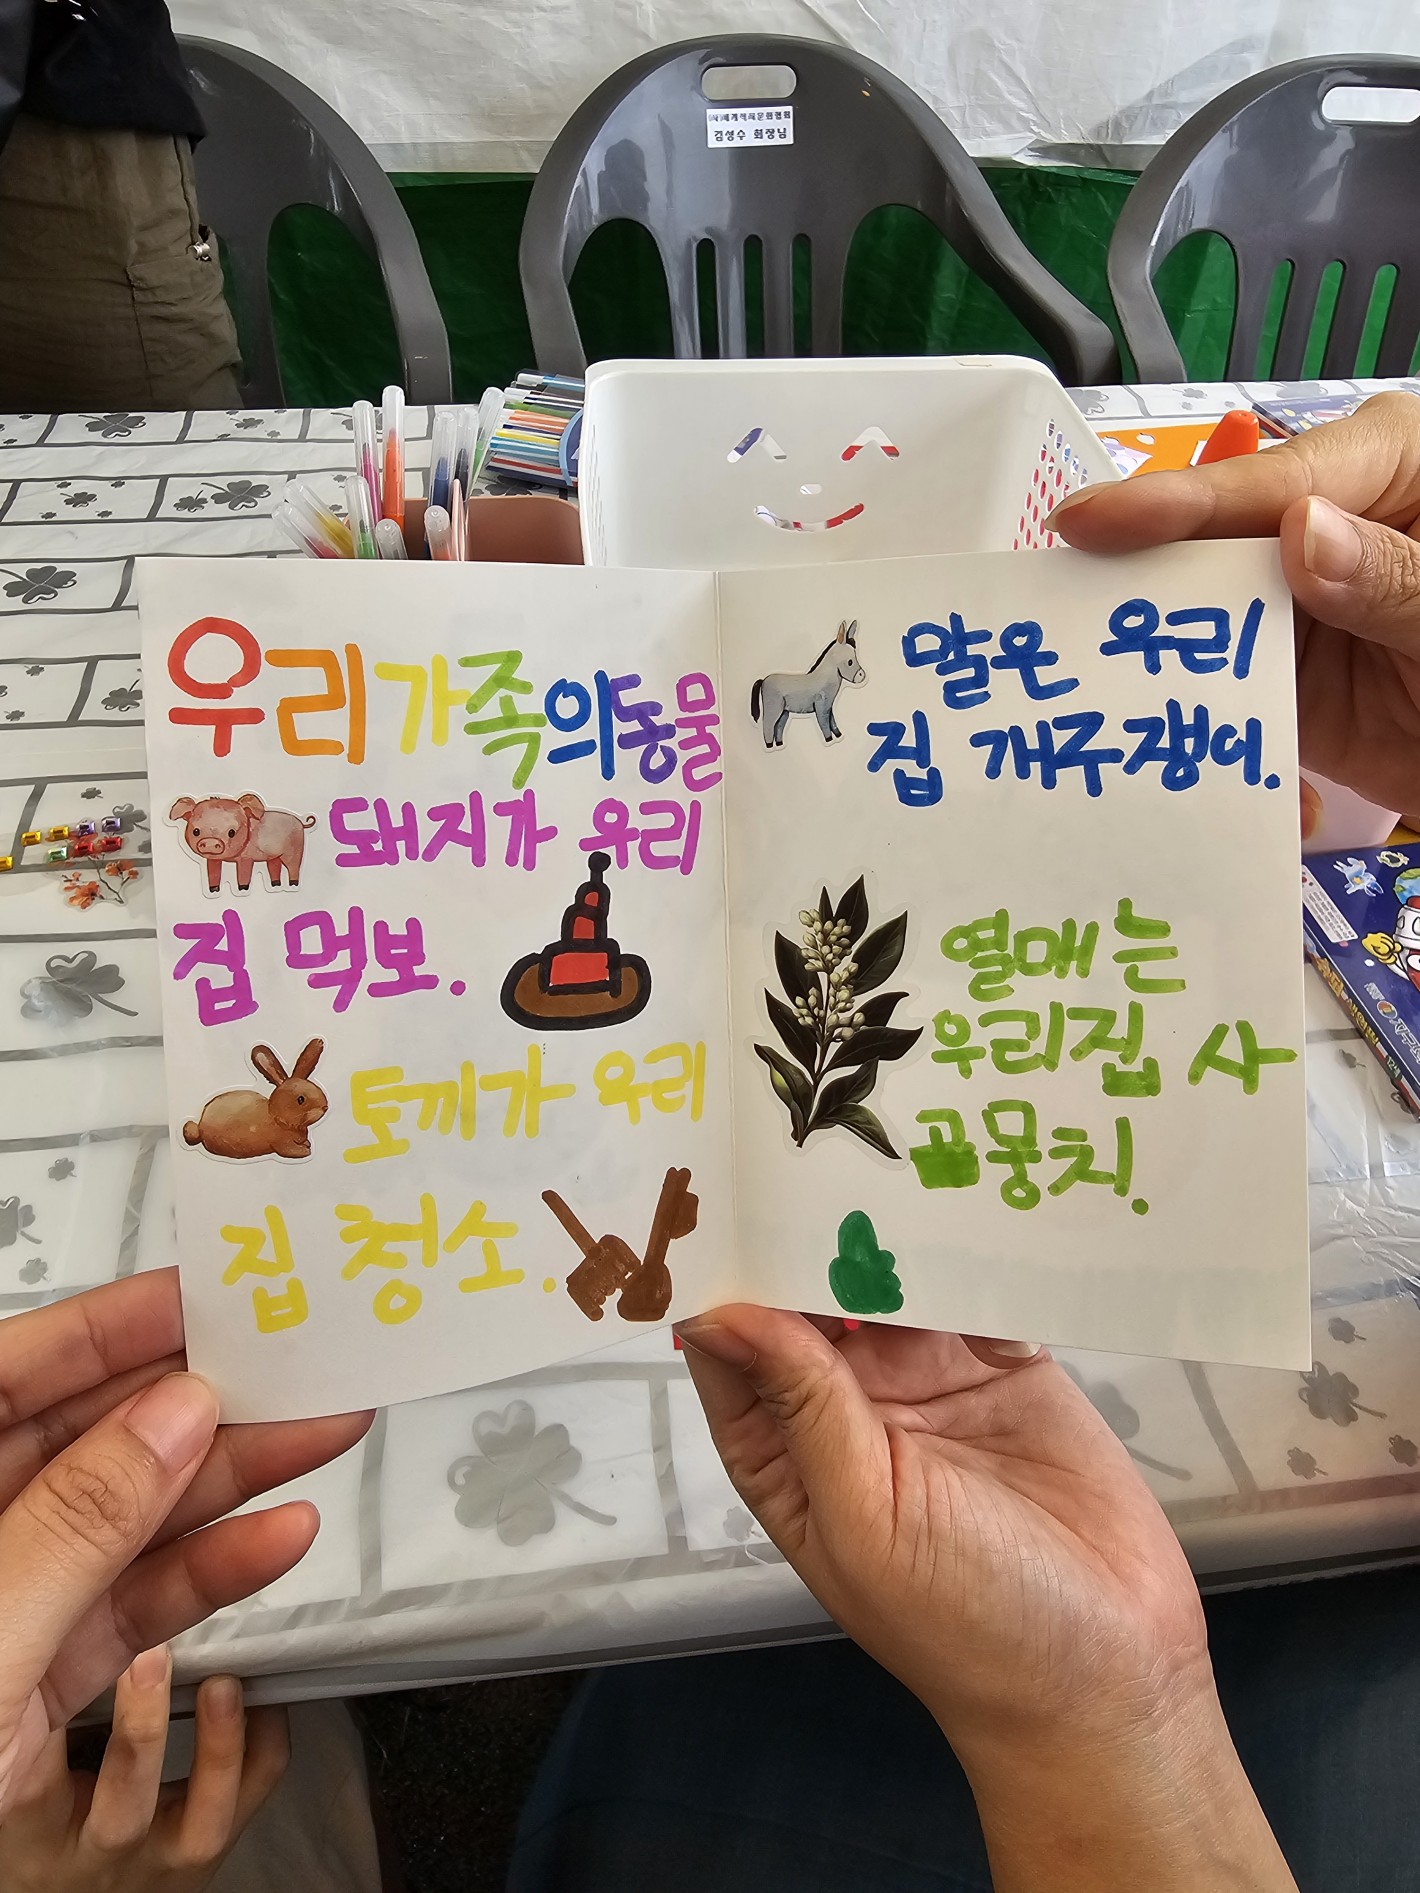 (사)세계책피문화협회
김성수 회장님
우리가족의동물
돼지가 우리
집 먹보.
토끼가 우리
집 청소.
말은 우리
집 개구쟁이.
열매는
우리집 사
곰뭉치.